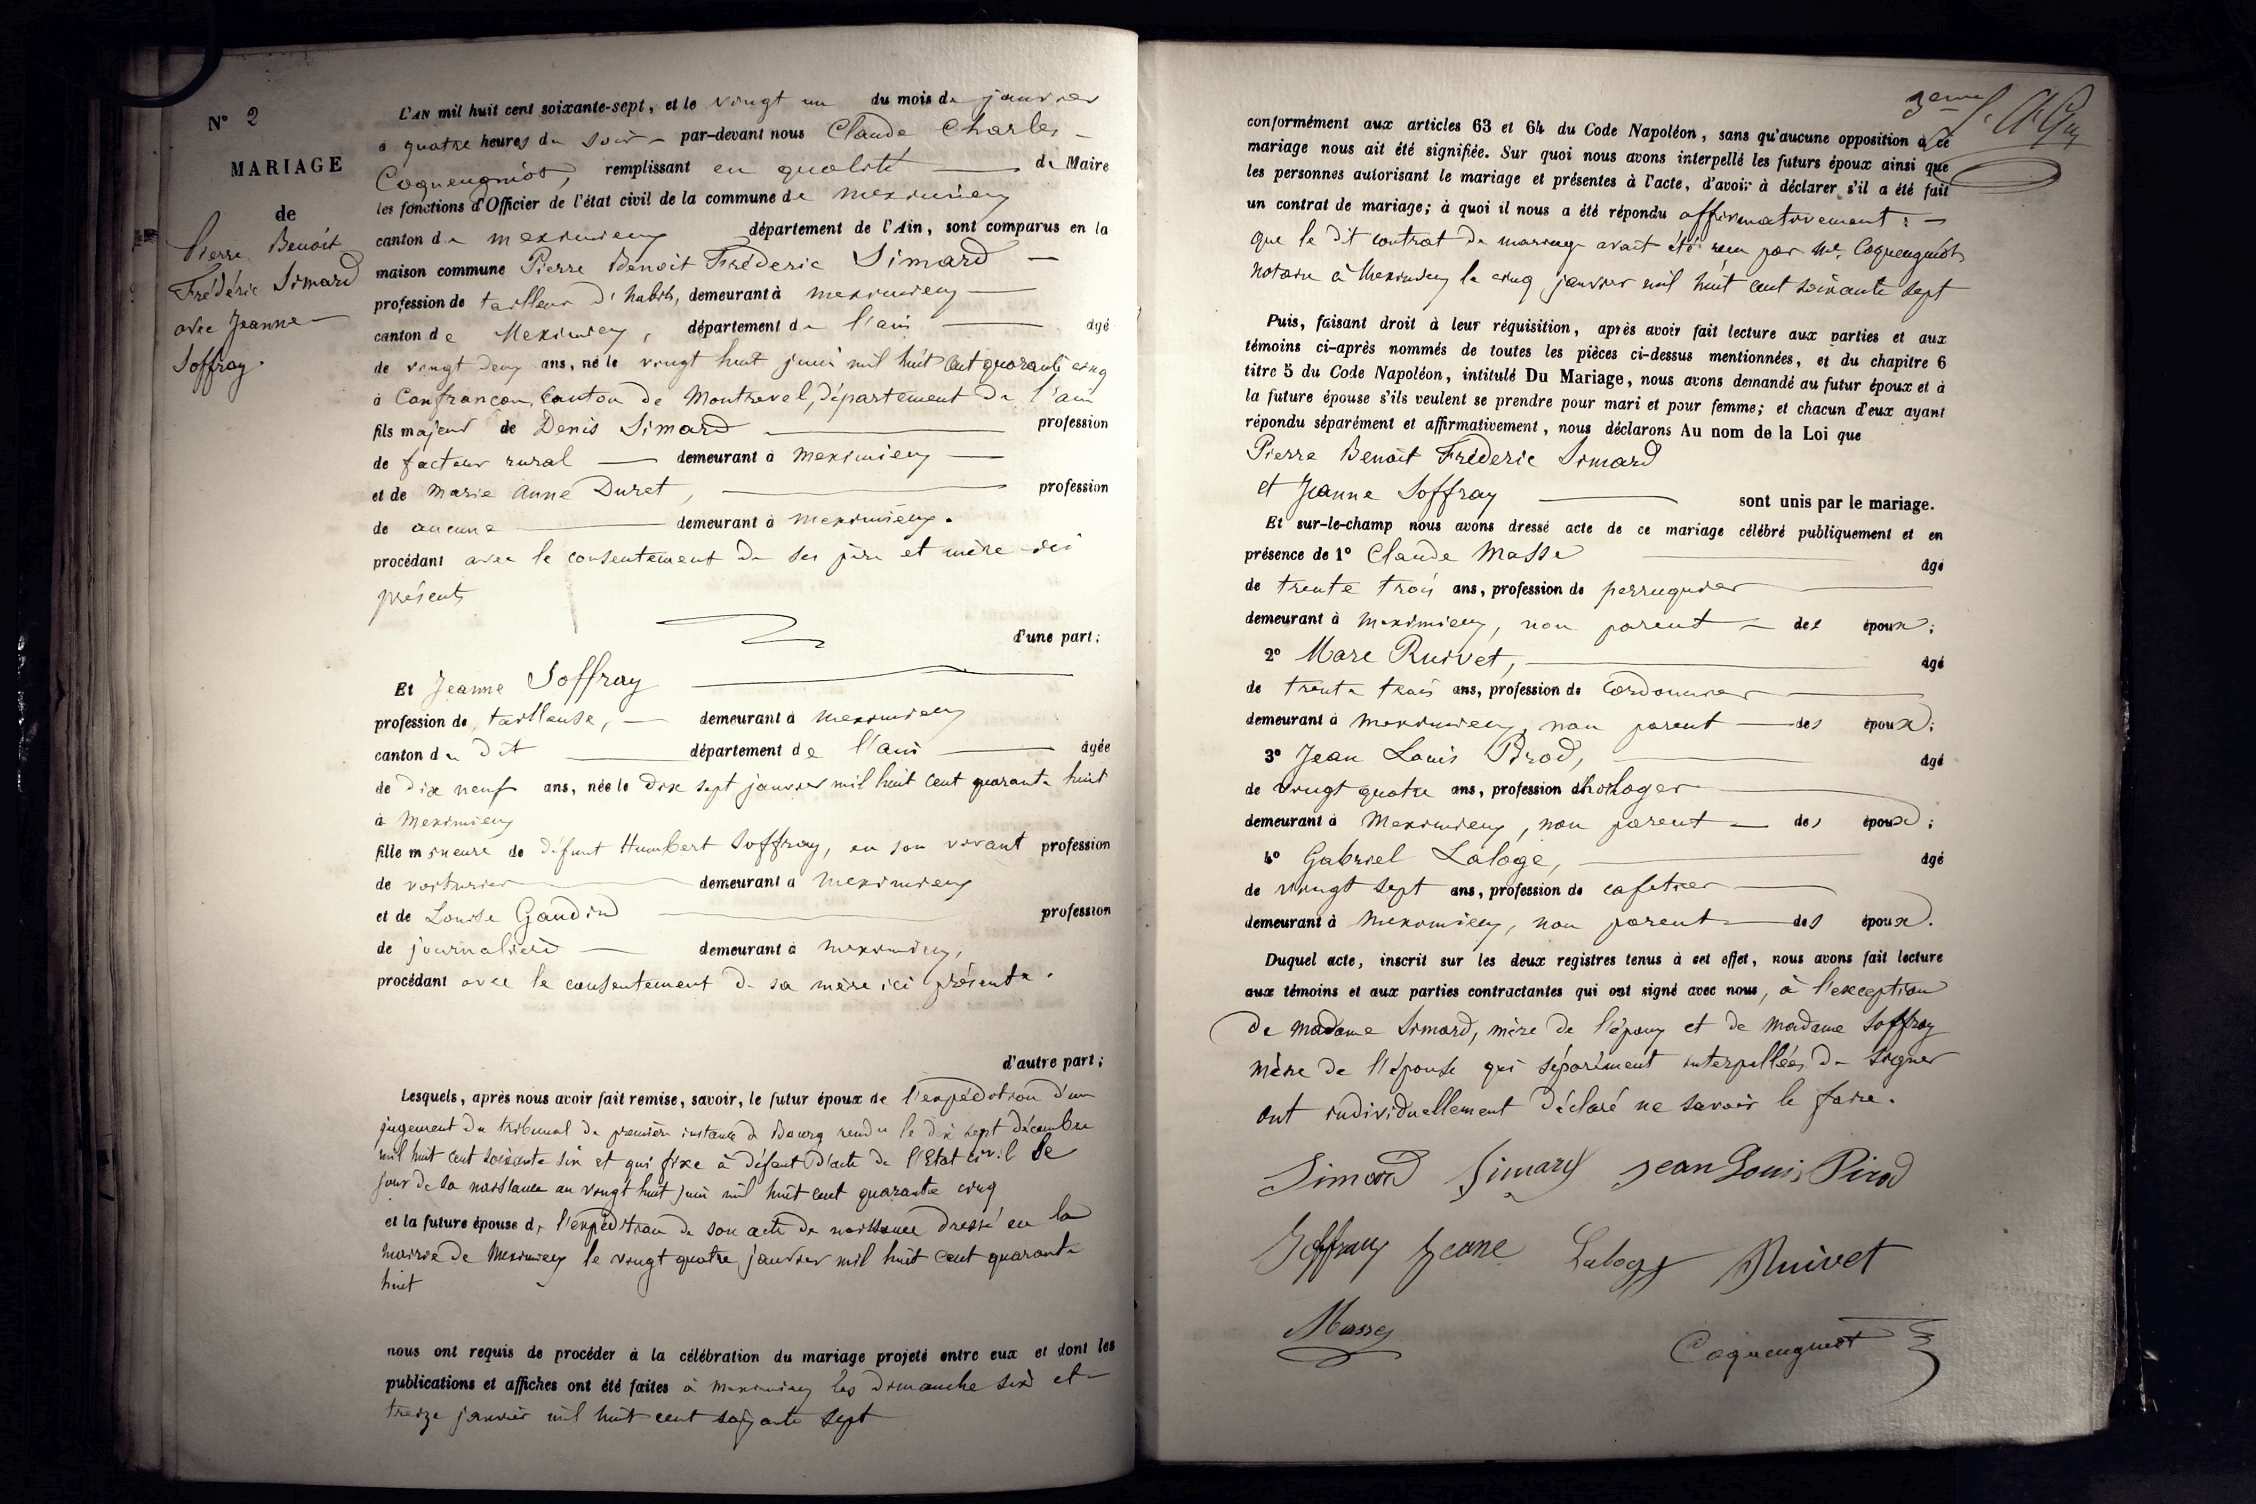 N° 2
MARIAGE
de
Pierre Benoit
Fréderic Simard
avec Jeanne
Soffray.
L'AN mil huit cent soixante-sept, et le vingt un du mois de janvier
à quatre heures du soir par-devant nous Claude Charles
Coquengniot, remplissant en qualité de Maire
les fonctions d'Officier de l'état civil de la commune de Meximieux
canton de Meximieux département de l'Ain, sont comparus en la
maison commune Pierre Benoit Fréderic Simard
profession de tailleur d'habits, demeurant à Meximieux
canton de Meximieux, département de l'ain âgé
de vingt deux ans, né le vingt huit juin mil huit cent quarante cinq
à Confrançon, Canton de Montrevel, département de l'ain
fils majeur de Denis Simard profession
de facteur rural demeurant à Meximieux
et de Marie Anne Duret, profession
de aucune demeurant à Meximieux.
procédant avec le consentement de ses père et mère ici
présents
d'une part;
Et Jeanne Soffray
profession de tailleuse, demeurant à Meximieux
canton du dit département de l'ain âgée
de dix neuf ans, née le dix sept janvier mil huit cent quarante huit
à Meximieux
fille mineure de défunt Humbert Soffray, en son vivant profession
de voiturier demeurant à Meximieux
et de Louise Gaudin profession
de journalière demeurant à Meximieux,
procédant avec le consentement de sa mère ici présente.
d'autre part;
Lesquels, après nous avoir fait remise, savoir, le futur époux de l'expédition d'un
jugement du tribunal de première instance de Bourg rendu le dix sept décembre
mil huit cent soixante six et qui fixe à défaut d'acte de l'Etat civil le
jour de sa naissance au vingt huit juin mil huit cent quarante cinq
et la future épouse de l'expédition de son acte de naissance dressé en la
mairie de Meximieux le vingt quatre janvier mil huit cent quarante
huit
nous ont requis de procéder à la célébration du mariage projeté entre eux et dont les
publications et affiches ont été faites à Meximieux les dimanche six et
treize janvier mil huit cent soixante sept
3eme
conformément aux articles 63 et 64 du Code Napoléon, sans qu'aucune opposition à ce
mariage nous ait été signifiée. Sur quoi nous avons interpellé les futurs époux ainsi que
les personnes autorisant le mariage et présentes à l'acte, d'avoir à déclarer s'il a été fait
un contrat de mariage; à quoi il nous a été répondu affirmativement:
que le dit contrat de mariage avait été reçu par Me. Coquengniot
notaire à Meximieux le cinq janvier mil huit cent soixante sept
Puis, faisant droit à leur réquisition, après avoir fait lecture aux parties et aux
témoins ci-après nommés de toutes les pièces ci-dessus mentionnées, et du chapitre 6
titre 5 du Code Napoléon, intitulé Du Mariage, nous avons demandé au futur époux et à
la future épouse s'ils veulent se prendre pour mari et pour femme; et chacun d'eux ayant
répondu séparément et affirmativement, nous déclarons Au nom de la Loi que
Pierre Benoit Fréderic Simard
et Jeanne Soffray sont unis par le mariage.
Et sur-le-champ nous avons dressé acte de ce mariage célébré publiquement et en
présence de 1° Claude Masse âgé
de trente trois ans, profession de perruquier
demeurant à Meximieux, non parent des époux;
2° Marc Ruivet, âgé
de trente trois ans, profession de Cordonnier
demeurant à Meximieux, non parent des époux;
3° Jean Louis Pirod, âgé
de vingt quatre ans, profession d'horloger
demeurant à Meximieux, non parent des époux;
4° Gabriel Laloge, âgé
de vingt sept ans, profession de cafetier
demeurant à Meximieux, non parent des époux.
Duquel acte, inscrit sur les deux registres tenus à cet effet, nous avons fait lecture
aux témoins et aux parties contractantes qui ont signé avec nous, à l'exception
de Madame Simard, mère de l'époux et de Madame Soffray
mère de l'épouse qui séparément interpellées de signer
ont individuellement déclaré ne savoir le faire.
Simard Simard Jean Louis Pirod
Soffray Jeane Laloge Ruivet
Masse
Coquengniot